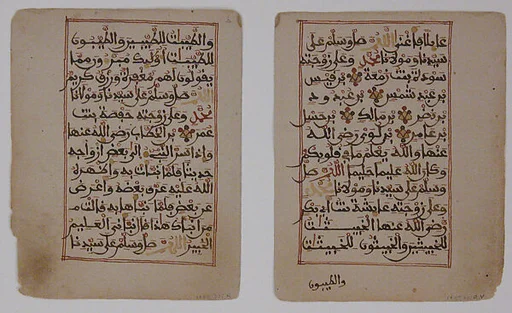 اللهم صل وسلم على
سيدنا ومولانا محمد وعلى زوجته
سودة بنت زمعة بن قيس
بن عبد شمس بن عبد ود
بن نضر بن مالك بن حسل
بن عامر بن لؤي رضي الله
عنها والله يعلم ما في قلوبكم
وكان الله عليما حليما اللهم صل
وسلم على سيدنا ومولانا محمد
وعلى زوجته عائشة بنت أبي بكر
رضي الله عنها الخبيثات
للخبيثين والخبيثون للخبيثات
والطيبون
والطيبات للطيبين والطيبون
للطيبات أولئك مبرءون مما
يقولون لهم مغفرة ورزق كريم
اللهم صل وسلم على سيدنا ومولانا
محمد وعلى زوجته حفصة بنت
عمر بن الخطاب رضي الله عنها
وإذ أسر النبي إلى بعض أزواجه
حديثا فلما نبأت به وأظهره
الله عليه عرف بعضه وأعرض
عن بعض فلما نبأها به قالت
من أنبأك هذا قال نبأني العليم
الخبير اللهم صل وسلم على سيدنا